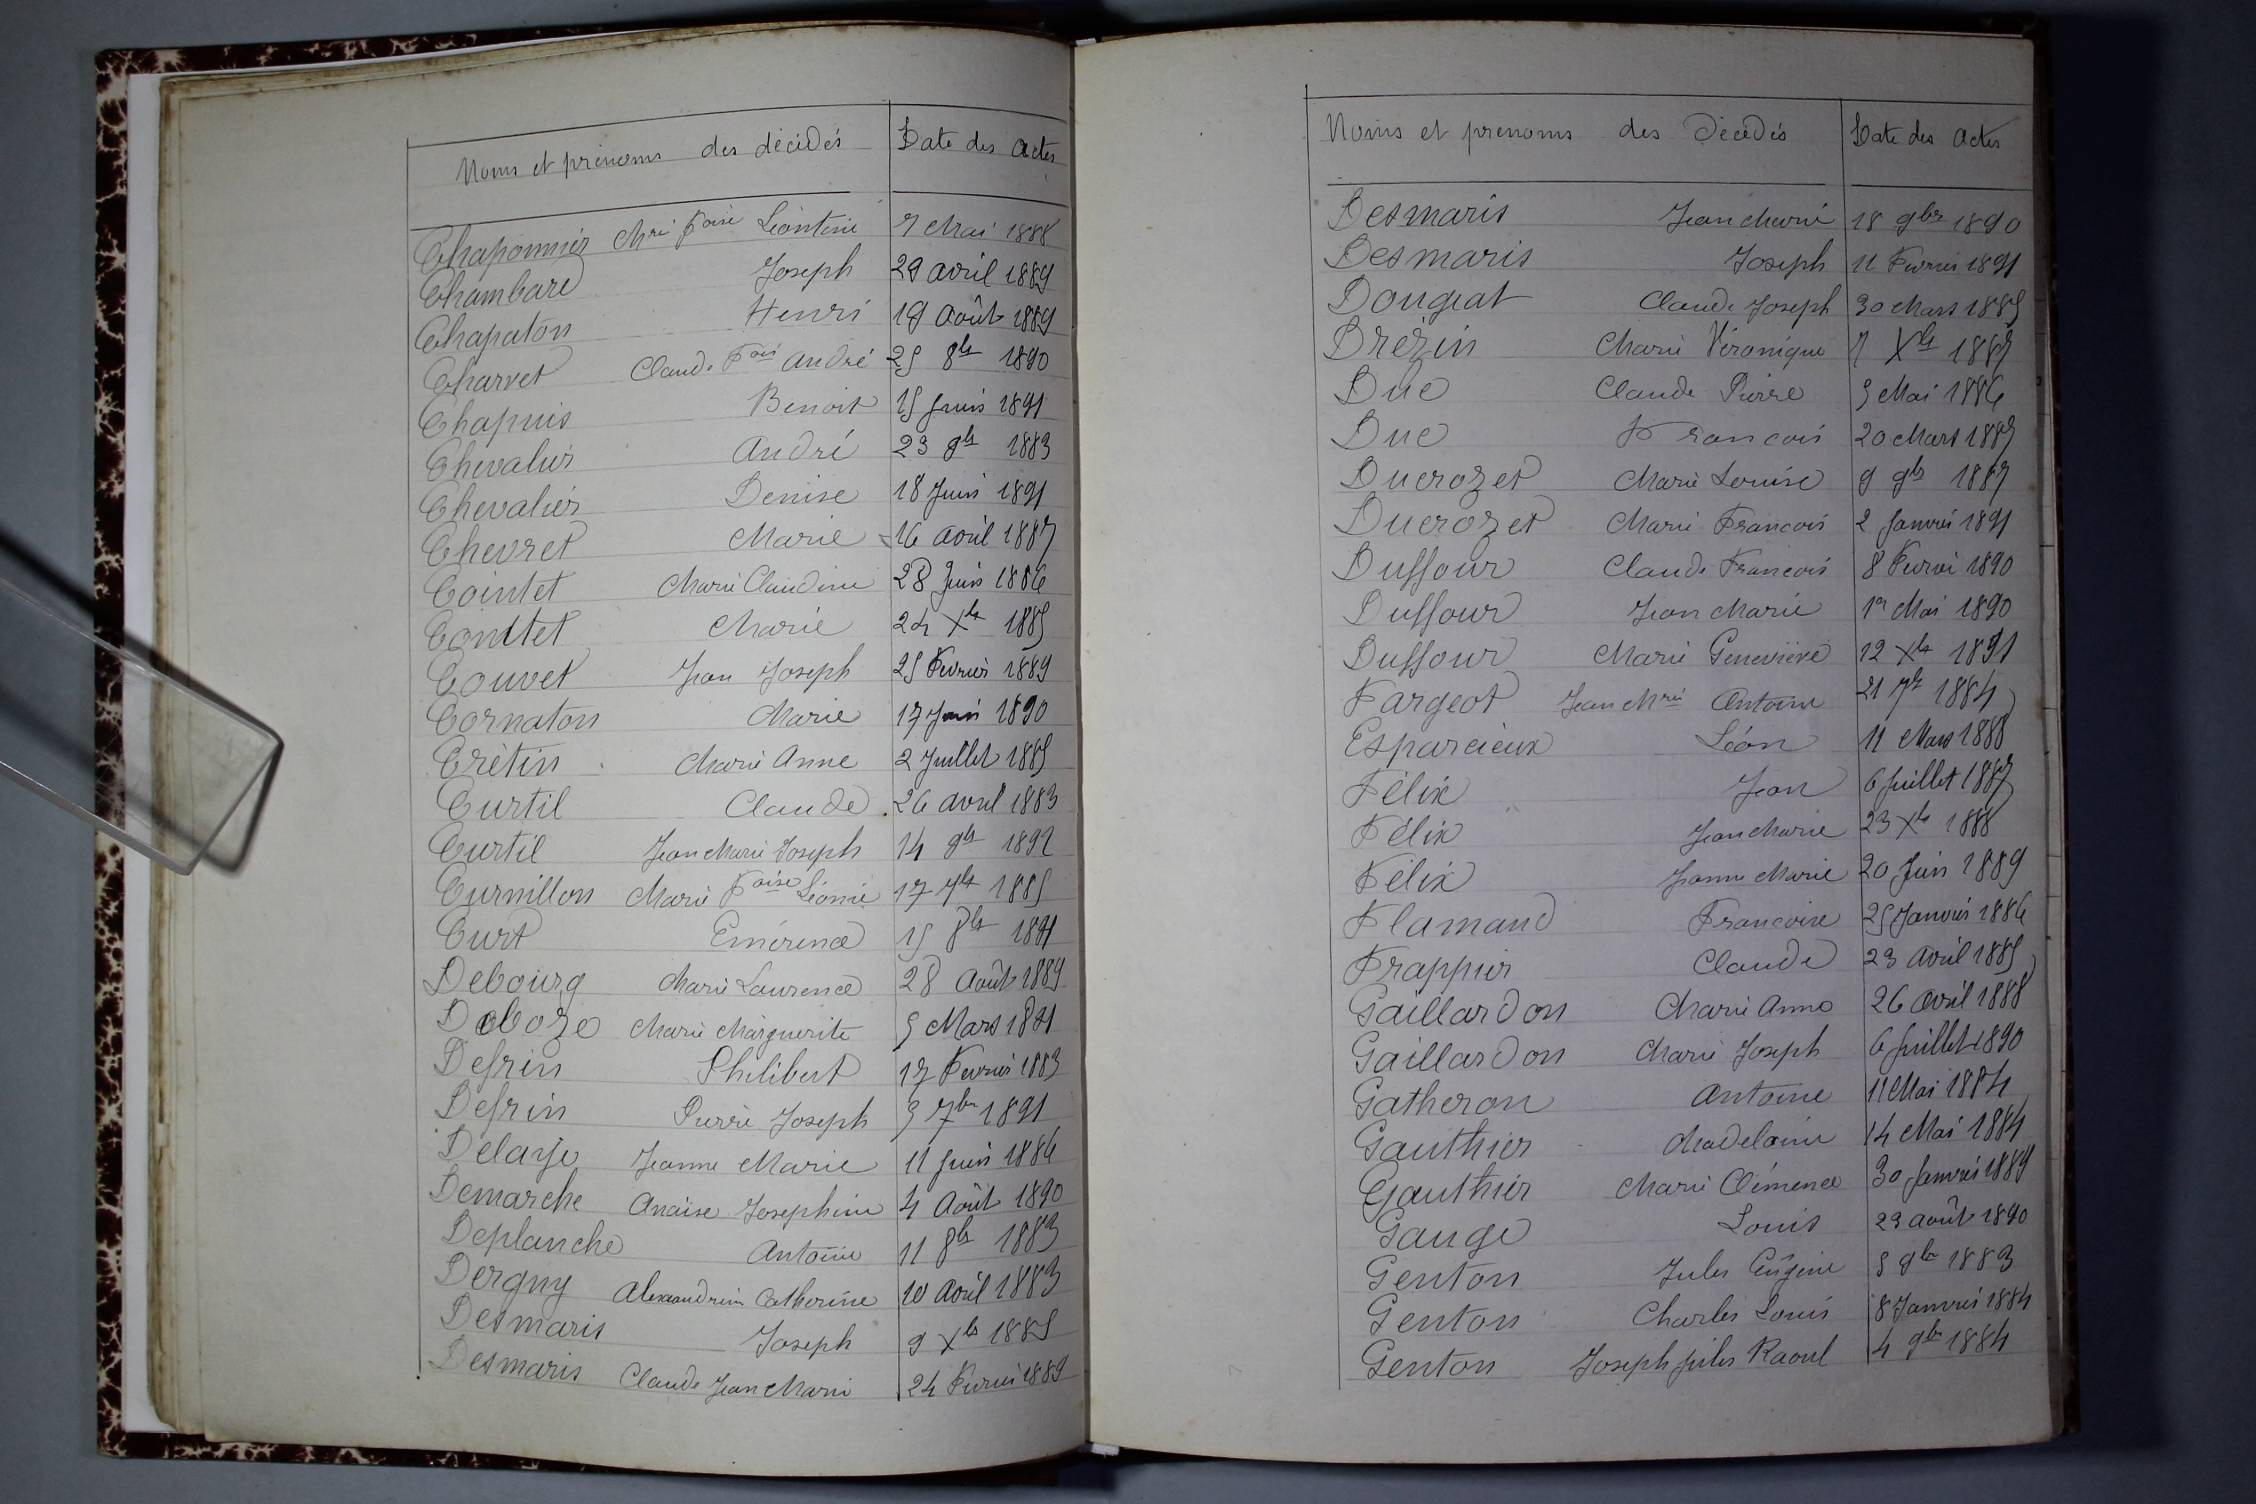 Noms et prénoms des décédés Date des actes
Chaponnier Mrie Foise Léontine 7 Mai 1888
Chambard Joseph 29 avril 1889
Chapaton Henri 19 Août 1889
Charvet Claude Fois André 25 8bre 1890
Chapuis Benoit 15 Juin 1891
Chevalier André 23 9bre 1883
Chevalier Denise 18 Juin 1891
Chevret Marie 16 avril 1887
Cointet Marie Claudine 28 Juin 1886
Contet Marie 24 Xbre 1885
Couvet Jean Joseph 25 Février 1889
Cornaton Marie 17 1890
Crétin Marie Anne 2 Juillet 1885
Curtil Claude 26 avril 1883
Curtil Jean Marie Joseph 14 9bre 1892
Curnillon Marie Foise Léonie 17 7bre 1885
Curt Emérence 15 8bre 1891
Debourg Marie Laurence 28 Août 1889
Deboze Marie Marguerite 5 Mars 1891
Defrin Philibert 17 Février 1883
Defrin Pierre Joseph 5 7bre 1891
Delaye Jeanne Marie 11 Juin 1886
Demarche Anaïse Josephine 4 Août 1890
Deplanche Antoine 11 8bre 1883
Derguy Alexandrine Catherine 10 Avril 1883
Desmaris Joseph 9 Xbre 1885
Desmaris Claude Jean Marie 24 Février 1889
Noms et prenoms des Décédés Date des actes
Desmaris Jean Marie 18 9bre 1890
Desmaris Joseph 11 Février 1891
Dougeat Claude Joseph 30 Mars 1885
Drézin Marie Véronique 7 Xbre 1887
Duc Claude Pierre 5 Mai 1886
Duc Francois 20 Mars 1887
Ducrozet Marie Louise 9 9bre 1887
Ducrozet Marie Francois 2 Janvier 1891
Duffour Claude Francois 8 Février 1890
Duffour Jean Marie 1er Mai 1890
Duffour Marie Geneviève 12 Xbre 1891
Fargeot Jean Mrie Antoine 21 7bre 1884
Esparcieux Léon 11 Mars 1888
Félix Jean 6 Juillet 1887
Félix Jean Marie 23 Xbre 1888
Félix Jeanne Marie 20 Juin 1889
Flamand Francoise 25 Janvier 1886
Frappier Claude 23 Avril 1885
Gaillardon Marie Anne 26 Avril 1888
Gaillardon Marie Joseph 6 Juillet 1890
Gatheron Antoine 11 Mai 1884
Gauthier Madelaine 14 Mai 1884
Gauthier Marie Clémence 30 Janvier 1889
Gauge Louis 23 août 1890
Genton Jules Eugène 5 9bre 1883
Genton Charles Louis 8 Janvier 1884
Genton Joseph Jules Raoul 4 9bre 1884